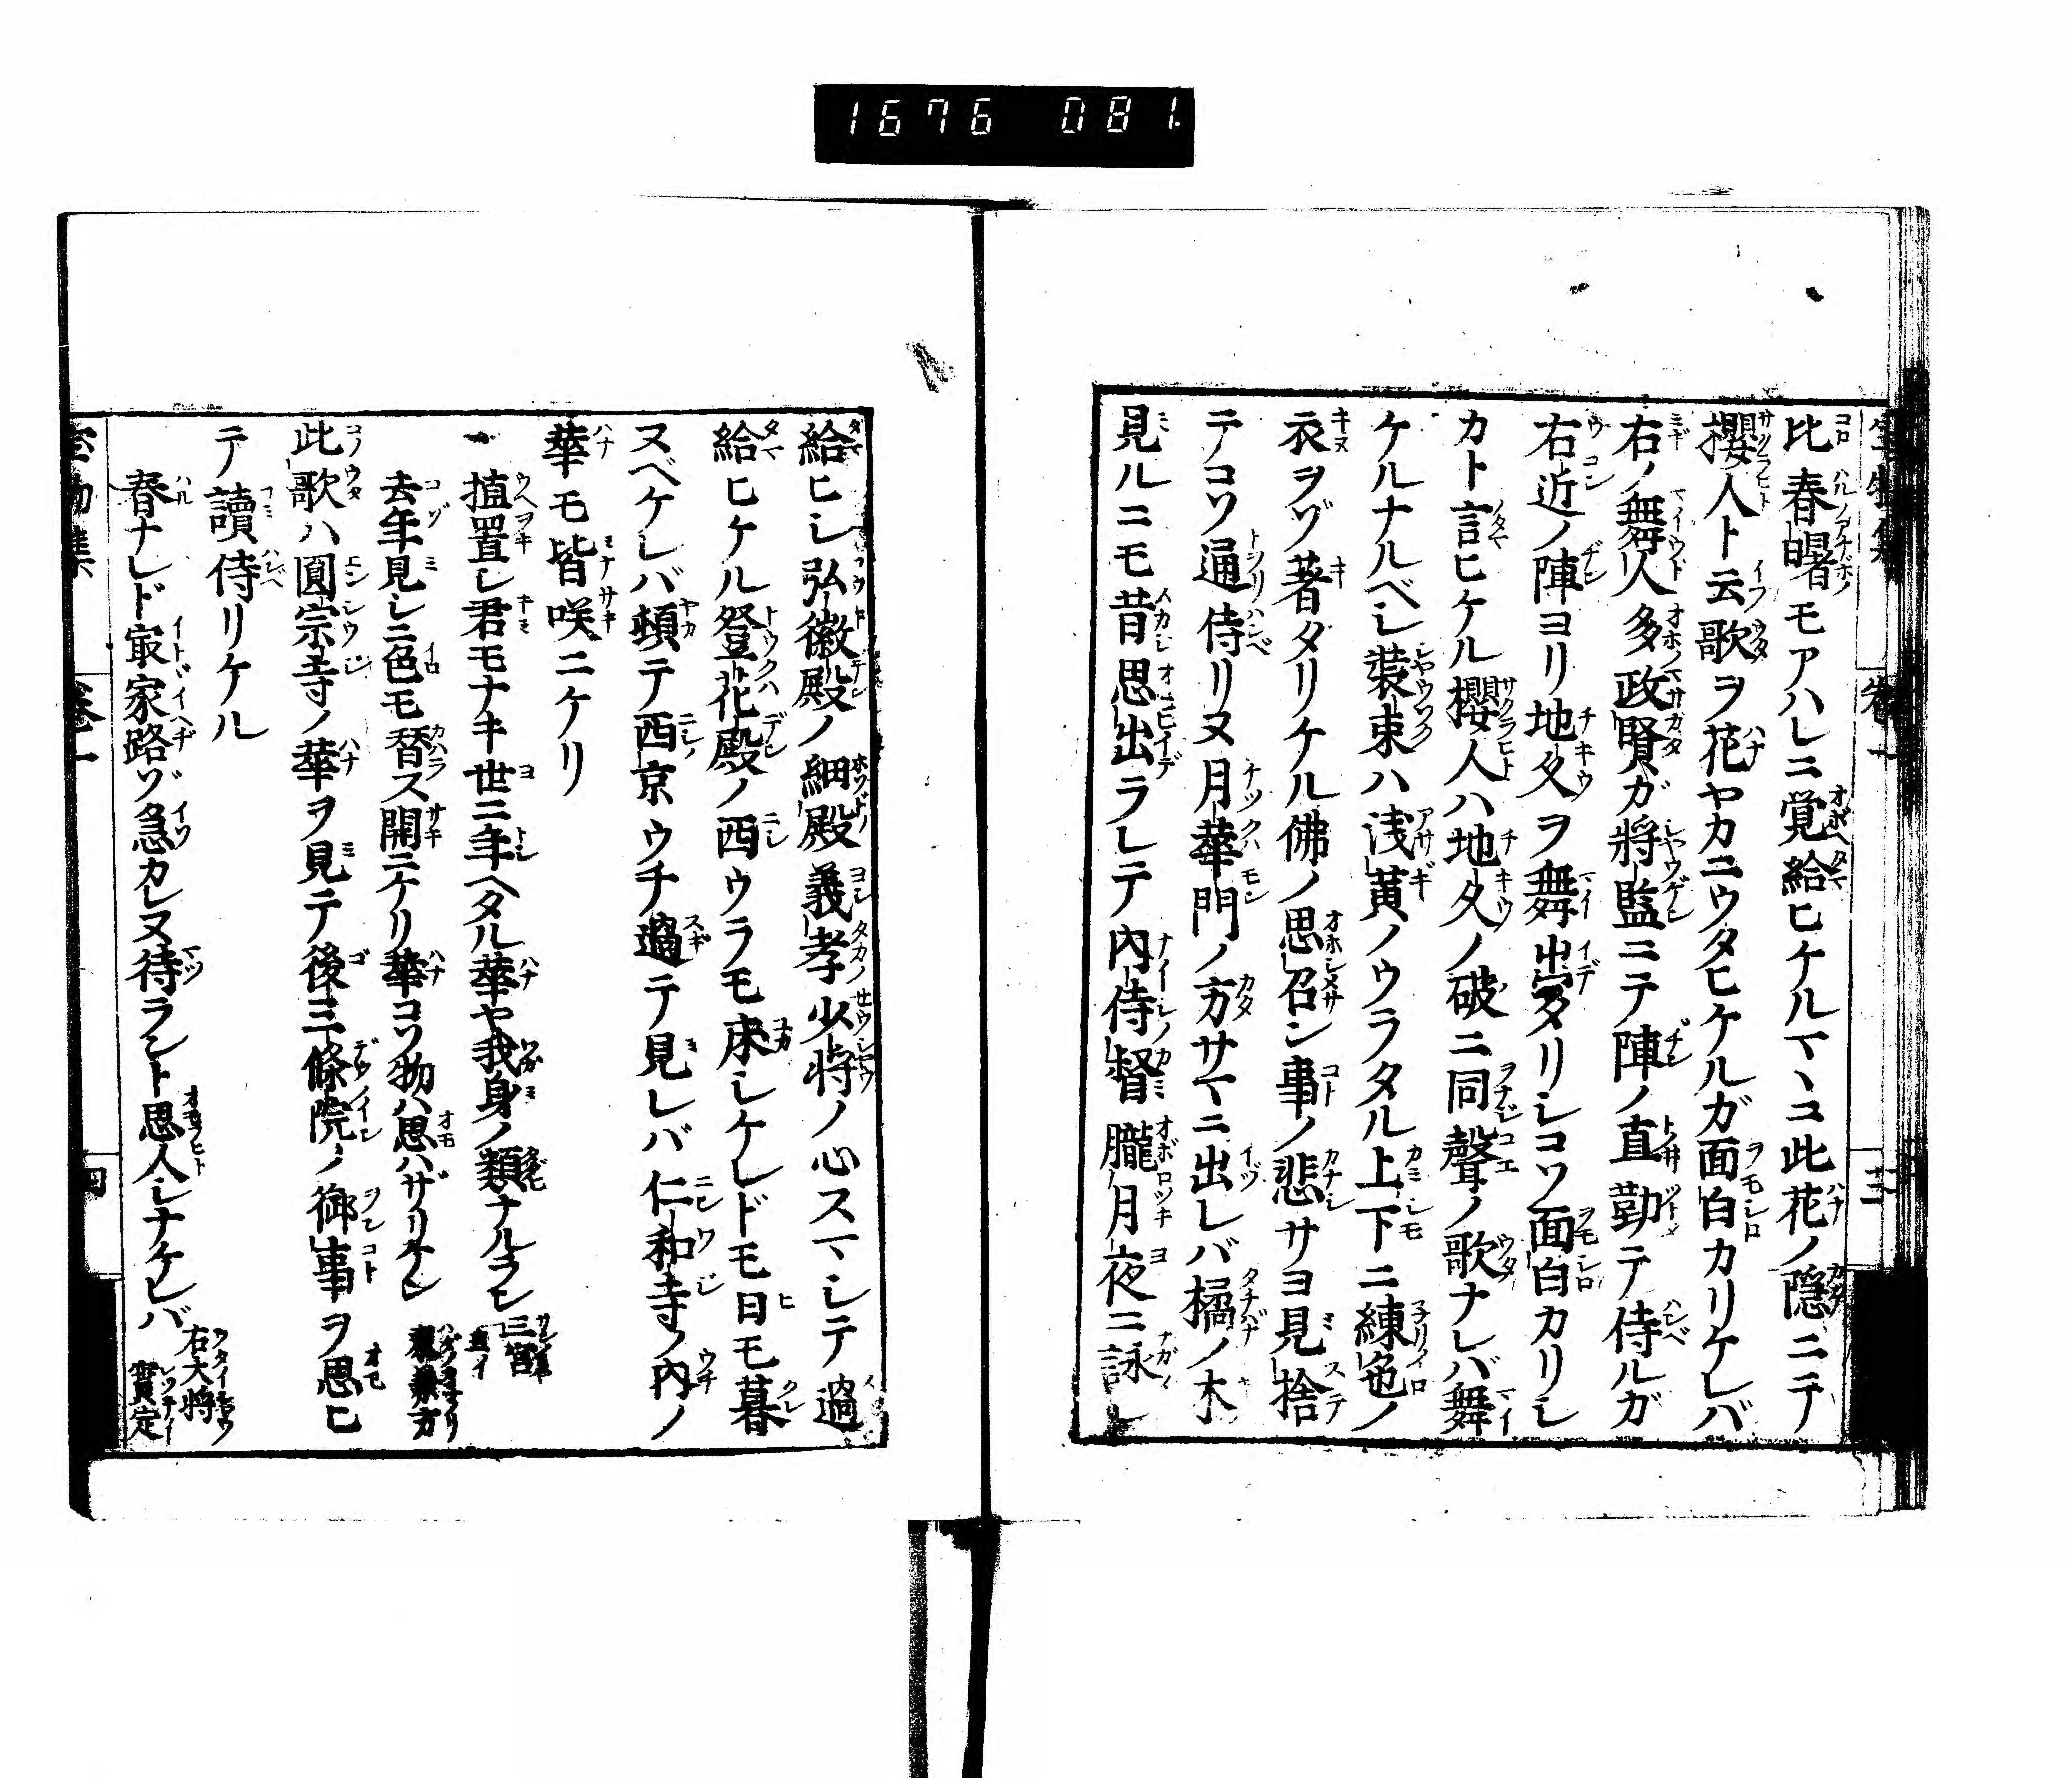 1676 081.
比春曙モアハレニ覚給ヒケルマヽコ此花ノ隠ニテ
櫻人ト云歌ヲ花ヤカニウタヒケルガ面白カリケレバ
右ノ舞人多政賢ガ將監ニテ陣ノ直勤テ侍ルガ
右近ノ陣ヨリ地久ヲ舞出タリシコソ面白カリシ
カト言ヒケル櫻人ハ地久ノ破ニ同聲ノ歌ナレバ舞
ケルナルベシ装束ハ浅黄ノウラタル上下ニ練色ノ
衣ヲゾ著タリケル佛ノ思召ン事ノ悲サヨ見捨
テコソ通侍リヌ月華門ノ方サマニ出レバ橘ノ木
見ルニモ昔思出ラレテ内侍督朧月夜ニ詠シ
給ヒシ弘徽殿ノ細殿義孝少将ノ心スマシテ過
給ヒケル登花殿ノ西ウラモ床シケレドモ日モ暮
ヌベケレバ頓テ西京ウチ過テ見レバ仁和寺ノ内ノ
華モ皆咲ニケリ
植置シ君モナキ世ニ年ヘタル華ヤ我身ノ類ナルラン 三宮
去年見シニ色モ替ス開ニケリ華コソ物ハ思ハザリケレ
此歌ハ圓宗寺ノ華ヲ見テ後三條院ノ御事ヲ思ヒ
テ讀侍リケル
春ナレド冣家路ゾ急カレヌ待ラント思人シナケレバ 右大将實定